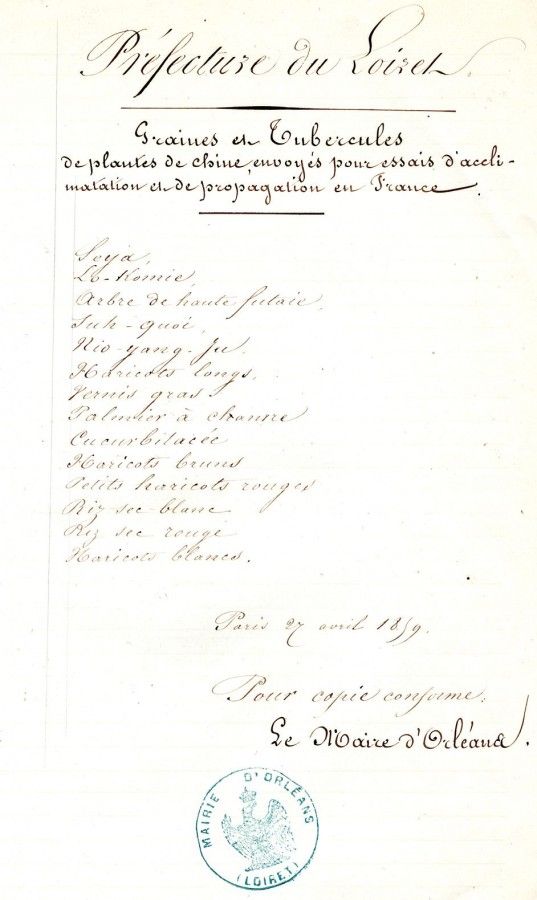 Préfecture du Loiret.
Graines et Tubercules
de plantes de chine, envoyés pour essais d'accli-
matation et de propagation en France.
Soja,
Lo-Komie,
Arbre de haute futaie,
Suh-quoi,
Nio-yang-Ju.
Haricots longs,
Vernis gras
Palmier à chanvre
Cucurbitacée
Haricots bruns
Petits haricots rouges
Riz-sec-blanc
Riz sec rouge
Haricots blancs.
Paris 27 avril 1859.
Pour copie conforme:
Le Maire d'Orléans.
MAIRIE D'ORLÉANS
(LOIRET)